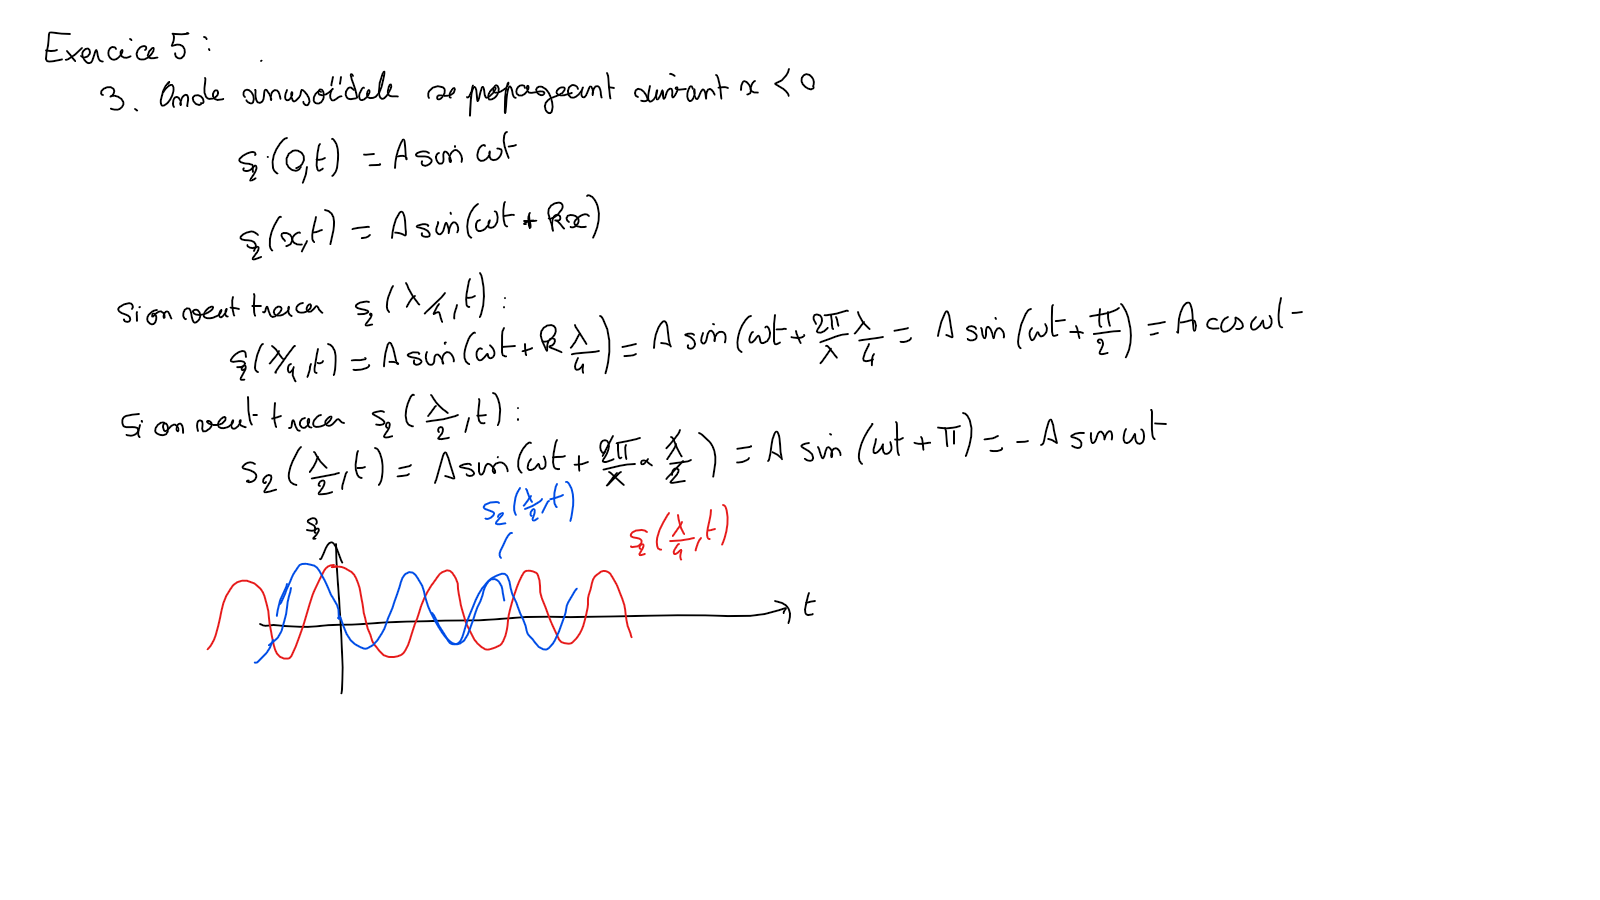 Exercice 5 :
3. Onde sinusoïdale se propageant suivant x < 0
s₂(0,t) = A sin ωt
s₂(x,t) = A sin(ωt + kx)
Si on veut tracer s₂(λ/4,t) :
s₂(λ/4,t) = A sin(ωt + k λ/4) = A sin(ωt + 2π/λ λ/4 = A sin(ωt + π/2) = A cos ωt
Si on veut tracer s₂(λ/2,t) :
s₂(λ/2,t) = A sin(ωt + 2π/λ × λ/2) = A sin(ωt + π) = - A sin ωt
s₂(λ/2,t)
s₂(λ/4,t)
s₂
t